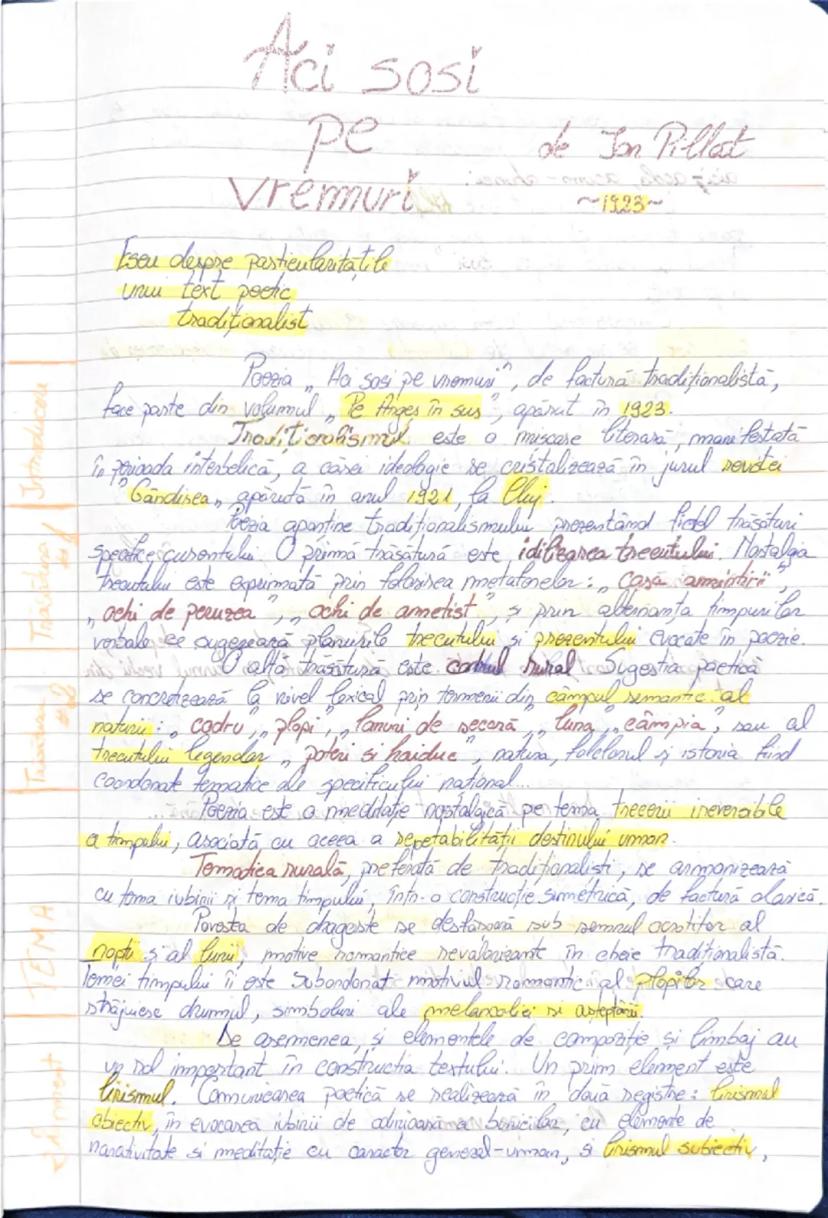 Aci sosi
pe
vremuri
de Ion Pillat
~1923~
Eseu despre particularitățile
unui text poetic
tradiționalist
Introducere
Poezia „Aci sosi pe vremuri”, de factură tradiționalistă,
face parte din volumul „Pe Argeș în sus”, apărut în 1923.
Tradiționalismul este o mișcare literară, manifestată
în perioada interbelică, a cărei ideologie se cristalizează în jurul revistei
"Gândirea„ apărută în anul 1921, la Cluj.
Trăsătura #1
Poezia aparține tradiționalismului prezentând astfel trăsături
specifice curentului. O primă trăsătură este idilizarea trecutului. Nostalgia
trecutului este exprimată prin folosirea metaforelor: „casa amintirii”,
„ochi de peruzea”, „ochi de ametist”, și prin alternanța timpurilor
verbale ce sugerează planurile trecutului și prezentului evocate în poezie.
Trăsătura #2
O altă trăsătură este cadrul rural. Sugestia poetică
se concretizează la nivel lexical prin termenii din câmpul semantic al
naturii: „codru„ „plopi„ „lanuri de secară„ „luna„ „câmpia”, sau al
trecutului legendar „poteri și haiduc”, natura, folclorul și istoria fiind
coordonate tematice ale specificului național...
TEMA
Poezia este o meditație nostalgică pe tema trecerii ireversibile
a timpului, asociată cu aceea a repetabilității destinului uman.
Tematica rurală, preferată de tradiționaliști, se armonizează
cu tema iubirii și tema timpului, într-o construcție simetrică, de factură clasică.
Povestea de dragoste se desfășoară sub semnul ocrotitor al
nopții și al lunii, motive romantice revalorizant în cheie tradiționalistă.
Temei timpului îi este subordonat motivul romantic al plopilor care
străjuiesc drumul, simboluri ale melancoliei și așteptării.
De asemenea, și elementele de compoziție și limbaj au
un rol important în construcția textului. Un prim element este
lirismul. Comunicarea poetică se realizează în două registre: lirismul
obiectiv, în evocarea iubirii de odinioară a bunicilor, cu elemente de
narativitate și meditație cu caracter general-uman, și lirismul subiectiv,